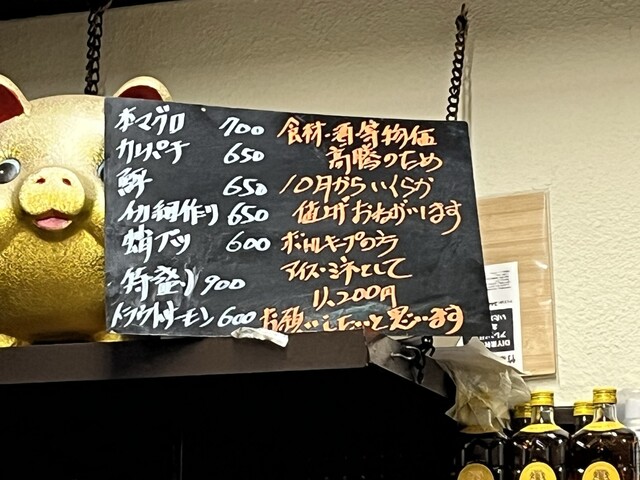 本マグロ 700
カルパチ 650
650
鯛作り 650
蛸ブツ 600
特盛り 900
トラウトサーモン 600
食材・酒等物価
高騰のため
10月からいくらか
値上げおねがいします
ボトルキープの方
アイス・ミネとして
1人200円
お願いしたいと思います